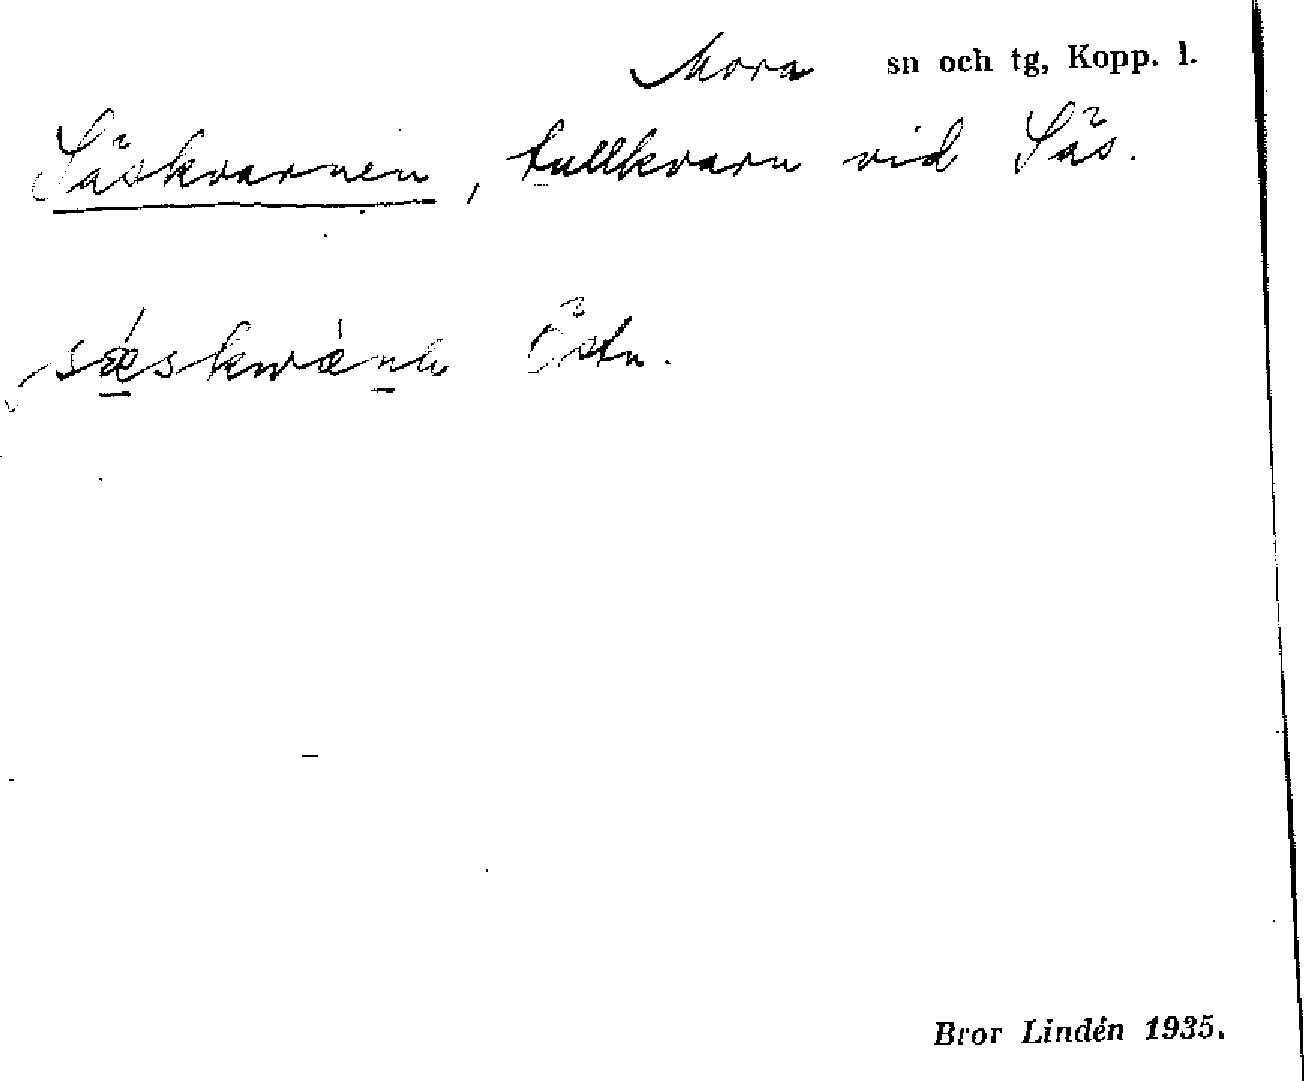 Mora sn och tg, Kopp. l.
Säskvarnen, tullkvarn vid Säs.
Östn.
Bror Lindén 1935.